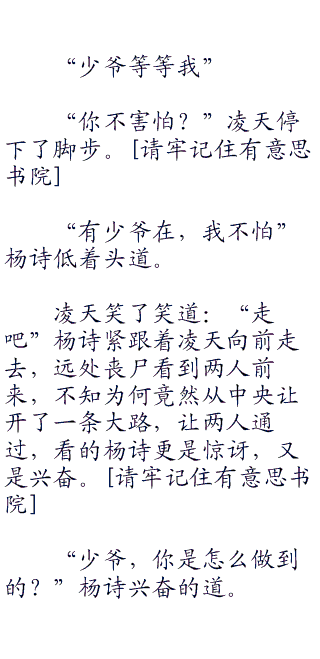 “少爷等等我”
“你不害怕？”凌天停
下了脚步。[请牢记住有意思
书院]
“有少爷在，我不怕”
杨诗低着头道。
凌天笑了笑道：“走
吧”杨诗紧跟着凌天向前走
去，远处丧尸看到两人前
来，不知为何竟然从中央让
开了一条大路，让两人通
过，看的杨诗更是惊讶，又
是兴奋。[请牢记住有意思书
院]
“少爷，你是怎么做到
的？”杨诗兴奋的道。